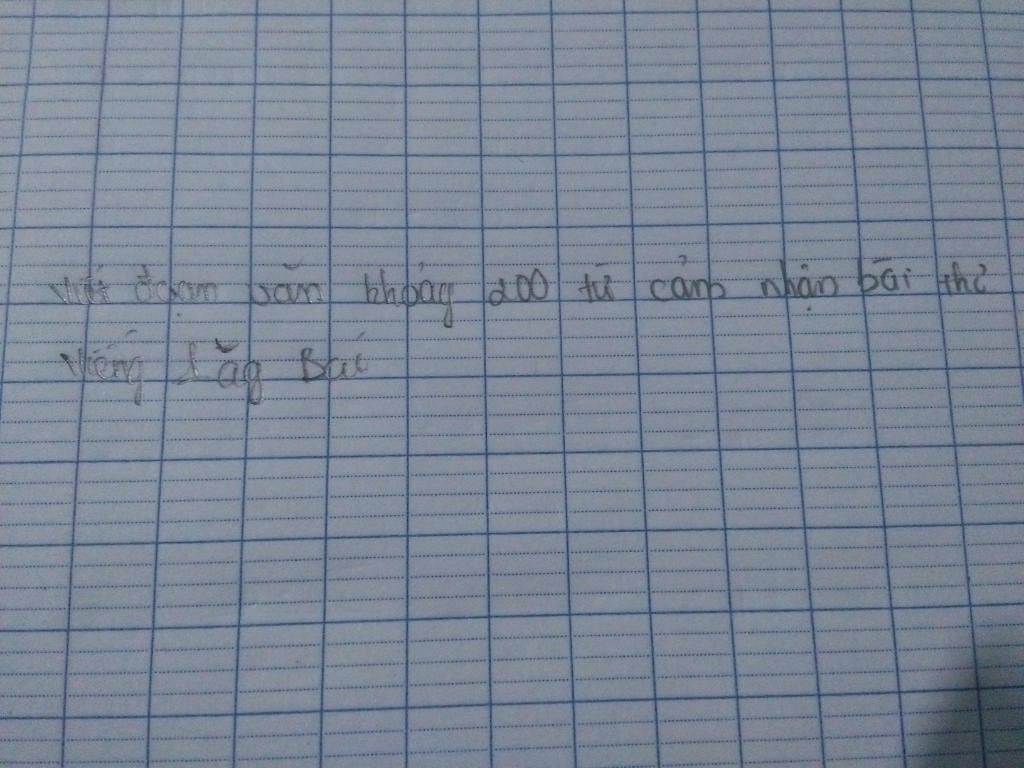 Viết đoạn văn khoảg 200 từ cảm nhận bài thơ
Viếng Lăg Bác